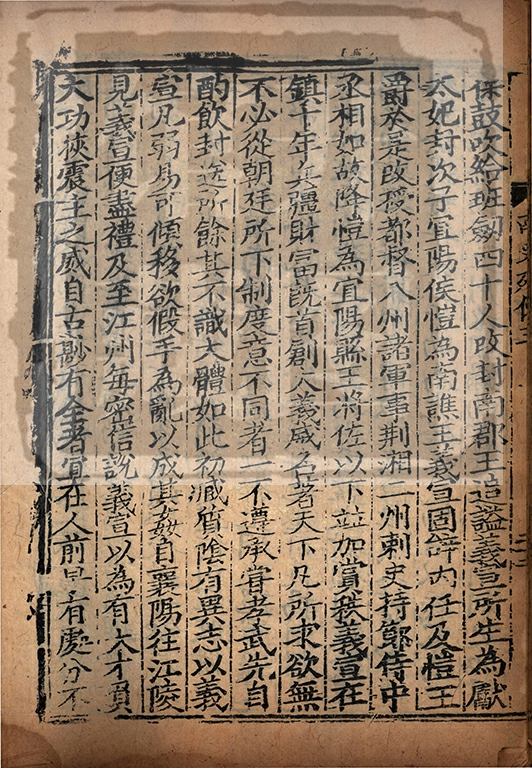 保鼓吹給班劒四十人改封南郡王追謚義宣所生為獻
太妃封次子宜陽侯愷為南譙王義宣固辝内任及愷王
爵於是改授都督八州諸軍事荆湘二州刺史持節侍中
丞相如故降愷為宜陽縣王將佐以下並加賞秩義宣在
鎮十年兵彊財富旣首創大義威名著天下凡所求欲無
不必從朝廷所下制度意不同者一不遵承甞孝武先自
酌飲封送所餘其不識大體如此初臧質陰有異志以義
宣凡弱易可傾移欲假手為亂以成其姦自襄陽往江陵
見義宣便盡禮及至江州每密信說義宣以為有大才負
大功挾震主之威自古尠有全者宜在人前早有處分不